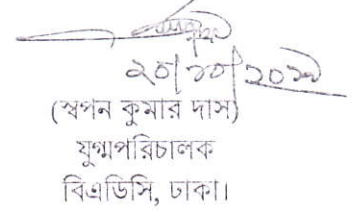 ২০/১০/২০১৯
(স্বপন কুমার দাস)
যুগ্মপরিচালক
বিএডিসি, ঢাকা।